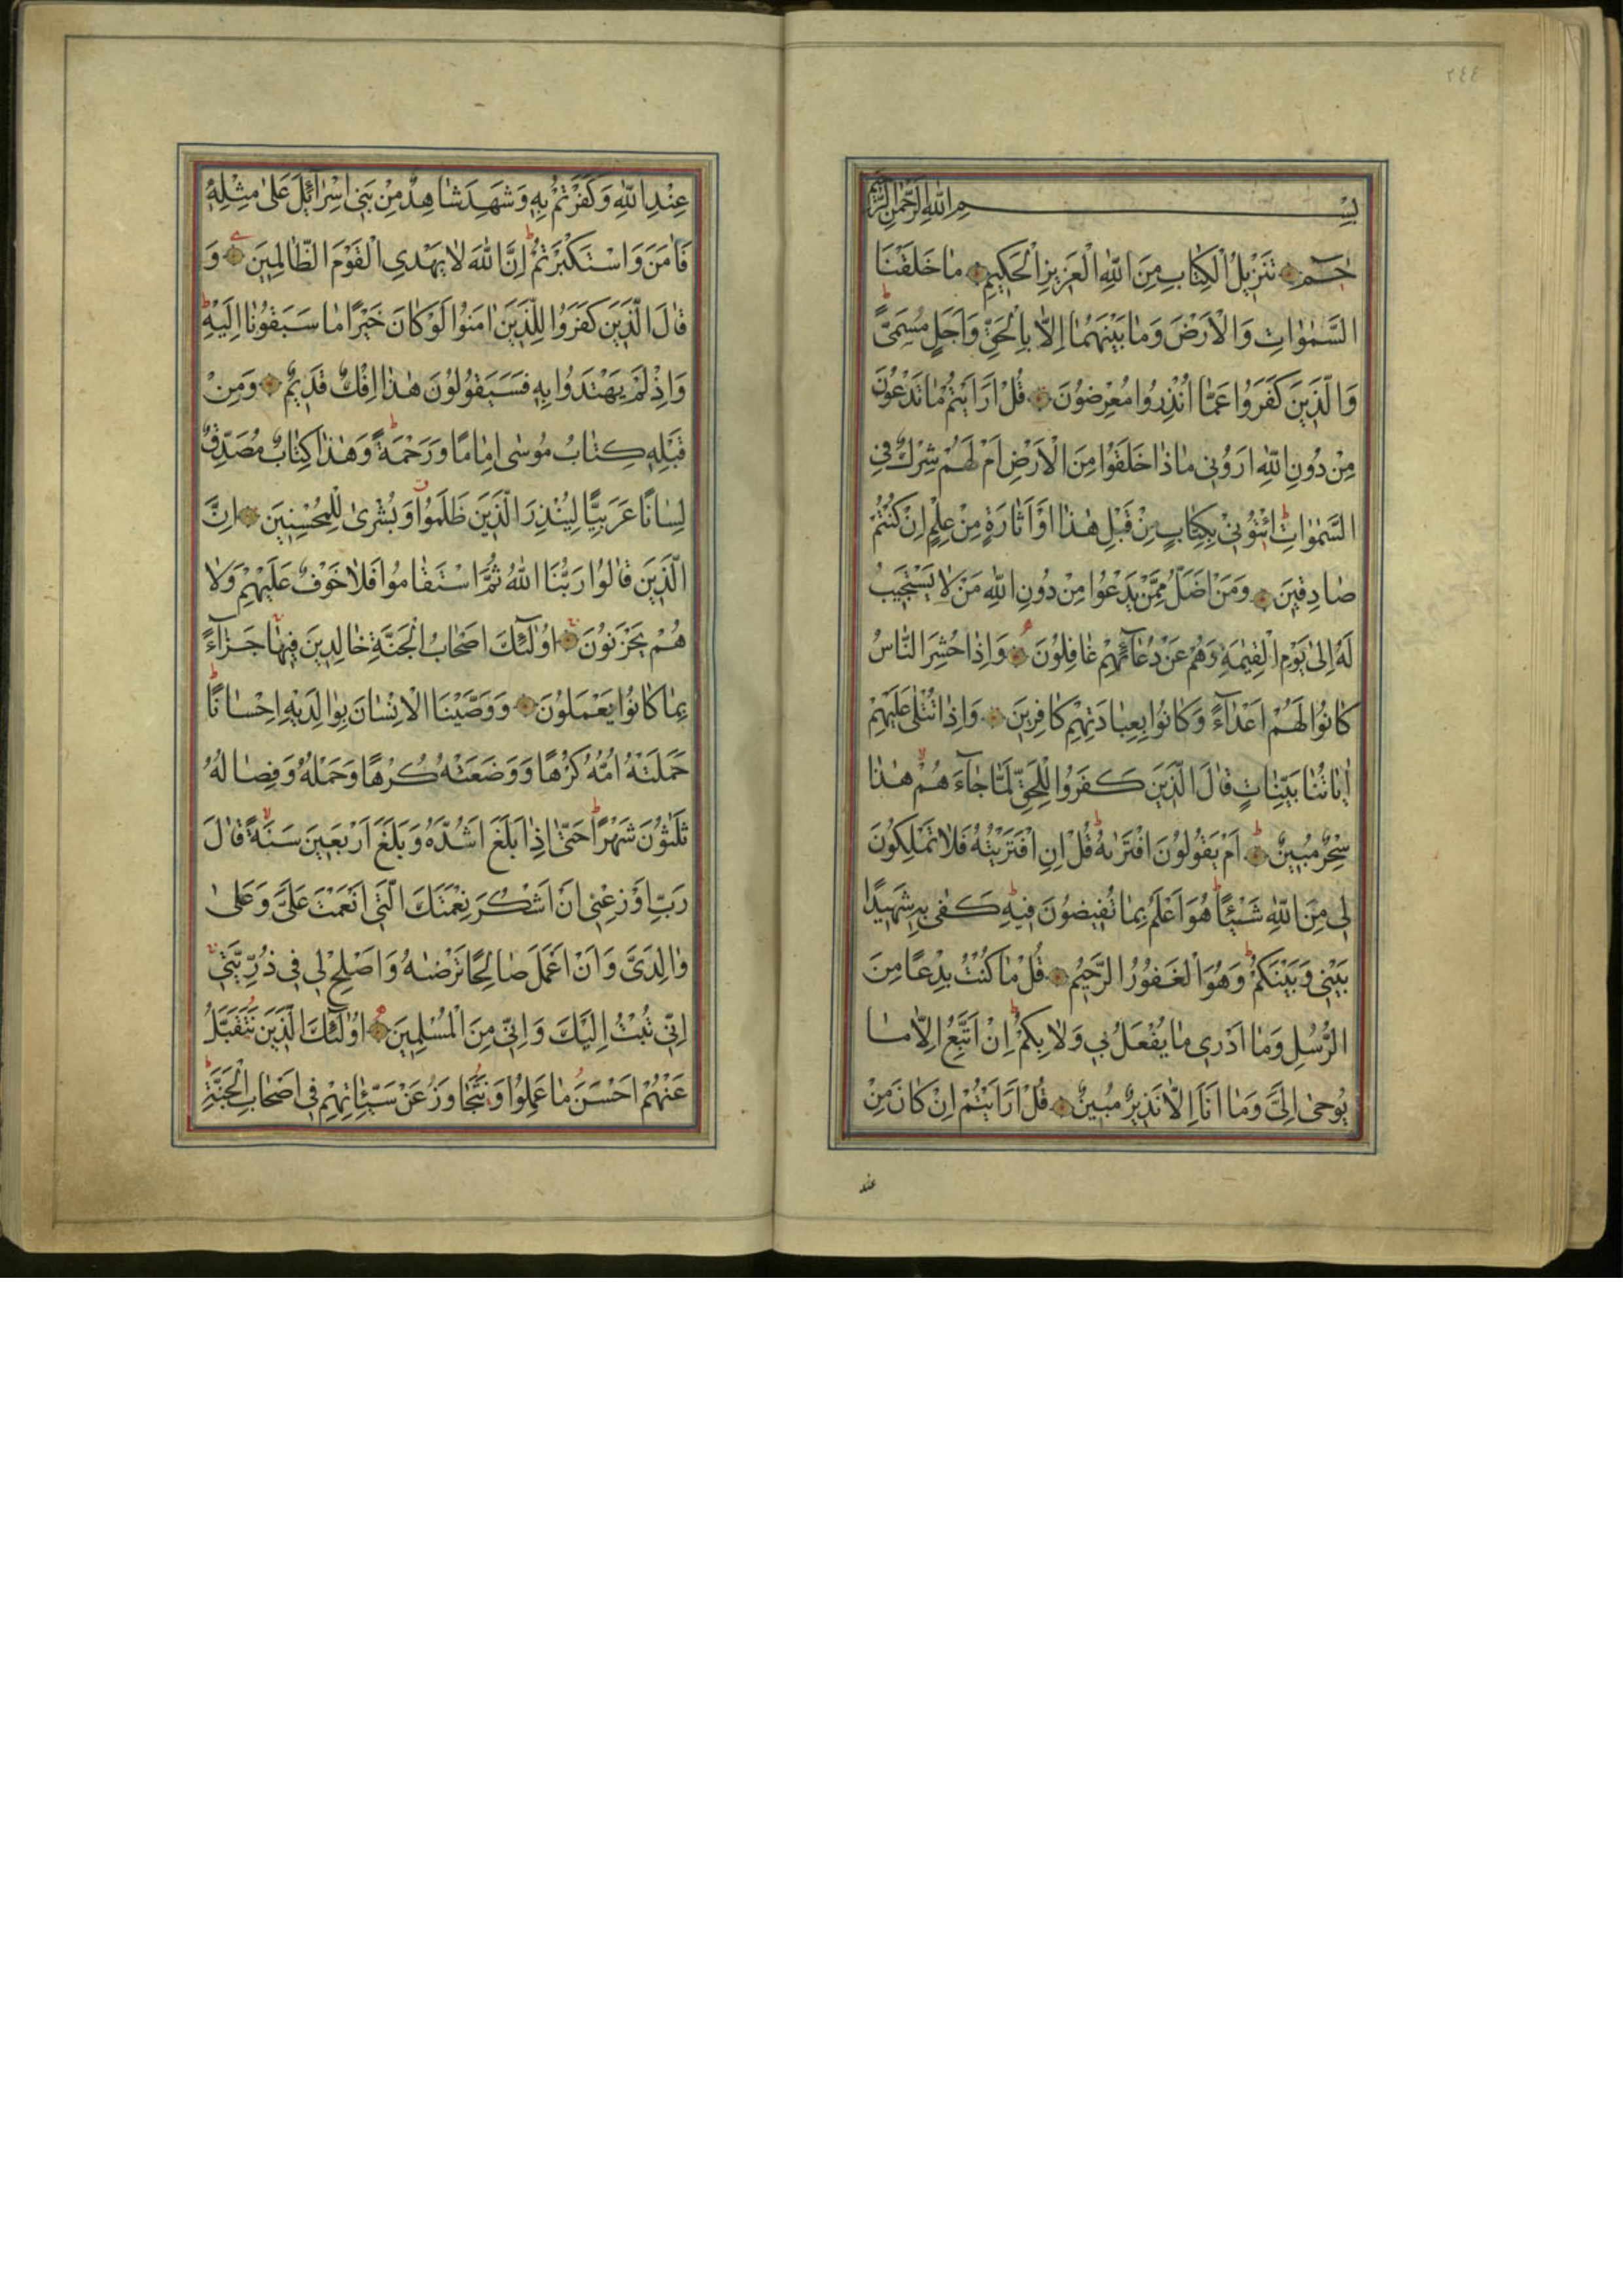 ٢٤٤
بِسْمِ اللّٰهِ الرَّحْمٰنِ الرَّحِيمِ
حٰمٓ تَنْزِيلُ الْكِتَابِ مِنَ اللّٰهِ الْعَزِيزِ الْحَكِيمِ مَا خَلَقْنَا
السَّمٰوَاتِ وَالْاَرْضَ وَمَا بَيْنَهُمَا اِلَّا بِالْحَقِّ وَاَجَلٍ مُسَمًّىۜ
وَالَّذِينَ كَفَرُوا عَمَّا اُنْذِرُوا مُعْرِضُونَ قُلْ اَرَاَيْتُمْ مَا تَدْعُونَ
مِنْ دُونِ اللّٰهِ اَرُونِي مَاذَا خَلَقُوا مِنَ الْاَرْضِ اَمْ لَهُمْ شِرْكٌ فِي
السَّمٰوَاتِ ائْتُونِي بِكِتَابٍ مِنْ قَبْلِ هٰذَا اَوْ اَثَارَةٍ مِنْ عِلْمٍ اِنْ كُنْتُمْ
صَادِقِينَ وَمَنْ اَضَلُّ مِمَّنْ يَدْعُوا مِنْ دُونِ اللّٰهِ مَنْ لَا يَسْتَجِيبُ
لَهُ اِلٰى يَوْمِ الْقِيٰمَةِ وَهُمْ عَنْ دُعَآئِهِمْ غَافِلُونَ وَاِذَا حُشِرَ النَّاسُ
كَانُوا لَهُمْ اَعْدَآءً وَكَانُوا بِعِبَادَتِهِمْ كَافِرِينَ وَاِذَا تُتْلٰى عَلَيْهِمْ
اٰيَاتُنَا بَيِّنَاتٍ قَالَ الَّذِينَ كَفَرُوا لِلْحَقِّ لَمَّا جَآءَهُمْ هٰذَا
سِحْرٌ مُبِينٌ اَمْ يَقُولُونَ افْتَرٰيهُ قُلْ اِنِ افْتَرَيْتُهُ فَلَا تَمْلِكُونَ
لِي مِنَ اللّٰهِ شَيْئًا هُوَ اَعْلَمُ بِمَا تُفِيضُونَ فِيهِ كَفٰى بِهِ شَهِيدًا
بَيْنِي وَبَيْنَكُمْ وَهُوَ الْغَفُورُ الرَّحِيمُ قُلْ مَا كُنْتُ بِدْعًا مِنَ
الرُّسُلِ وَمَا اَدْرِي مَا يُفْعَلُ بِي وَلَا بِكُمْ اِنْ اَتَّبِعُ اِلَّا مَا
يُوحٰى اِلَيَّ وَمَا اَنَا اِلَّا نَذِيرٌ مُبِينٌ قُلْ اَرَاَيْتُمْ اِنْ كَانَ مِنْ
عند
عِنْدِ اللّٰهِ وَكَفَرْتُمْ بِهِ وَشَهِدَ شَاهِدٌ مِنْ بَنِي اِسْرَآئِيلَ عَلٰى مِثْلِهِ
فَاٰمَنَ وَاسْتَكْبَرْتُمْ اِنَّ اللّٰهَ لَا يَهْدِي الْقَوْمَ الظَّالِمِينَ وَ
قَالَ الَّذِينَ كَفَرُوا لِلَّذِينَ اٰمَنُوا لَوْ كَانَ خَيْرًا مَا سَبَقُونَا اِلَيْهِ
وَاِذْ لَمْ يَهْتَدُوا بِهِ فَسَيَقُولُونَ هٰذَا اِفْكٌ قَدِيمٌ وَمِنْ
قَبْلِهِ كِتَابُ مُوسٰى اِمَامًا وَرَحْمَةً وَهٰذَا كِتَابٌ مُصَدِّقٌ
لِسَانًا عَرَبِيًّا لِيُنْذِرَ الَّذِينَ ظَلَمُوا وَبُشْرٰى لِلْمُحْسِنِينَ اِنَّ
الَّذِينَ قَالُوا رَبُّنَا اللّٰهُ ثُمَّ اسْتَقَامُوا فَلَا خَوْفٌ عَلَيْهِمْ وَلَا
هُمْ يَحْزَنُونَ اُولٰٓئِكَ اَصْحَابُ الْجَنَّةِ خَالِدِينَ فِيهَا جَزَآءً
بِمَا كَانُوا يَعْمَلُونَ وَوَصَّيْنَا الْاِنْسَانَ بِوَالِدَيْهِ اِحْسَانًا
حَمَلَتْهُ اُمُّهُ كُرْهًا وَوَضَعَتْهُ كُرْهًا وَحَمْلُهُ وَفِصَالُهُ
ثَلٰثُونَ شَهْرًا حَتّٰى اِذَا بَلَغَ اَشُدَّهُ وَبَلَغَ اَرْبَعِينَ سَنَةً قَالَ
رَبِّ اَوْزِعْنِي اَنْ اَشْكُرَ نِعْمَتَكَ الَّتِي اَنْعَمْتَ عَلَيَّ وَعَلٰى
وَالِدَيَّ وَاَنْ اَعْمَلَ صَالِحًا تَرْضٰيهُ وَاَصْلِحْ لِي فِي ذُرِّيَّتِي
اِنِّي تُبْتُ اِلَيْكَ وَاِنِّي مِنَ الْمُسْلِمِينَ اُولٰٓئِكَ الَّذِينَ نَتَقَبَّلُ
عَنْهُمْ اَحْسَنَ مَا عَمِلُوا وَنَتَجَاوَزُ عَنْ سَيِّئَاتِهِمْ فِي اَصْحَابِ الْجَنَّةِ